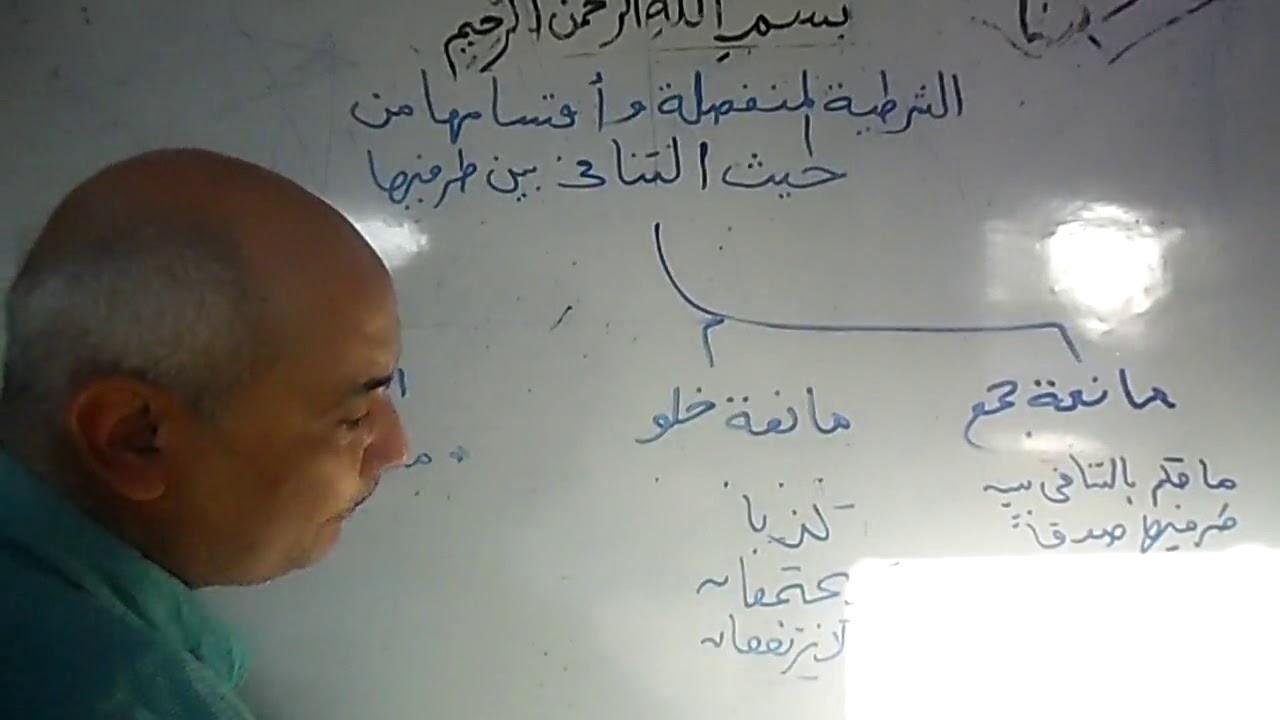 بسم الله الرحمن الرحيم
الشرطية المنفصلة وأقسامها من
حيث التنافي بين طرفيها
مانعة جمع
مانعة خلو
ما حكم بالتنافي بين
طرفيها صدقاً
كذبا
يجتمعان
لا يرتفعان